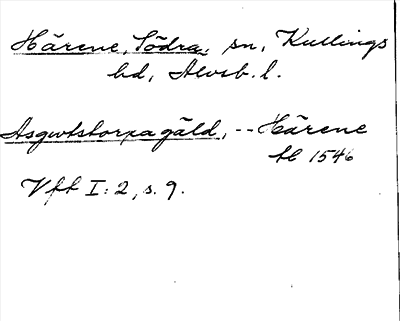 Härene, Södra, sn, Kullings
hd, Älvsb. l.
Asgwtstorpa gäld, -- Härene
tl 1546
Vff I: 2, s. 9.